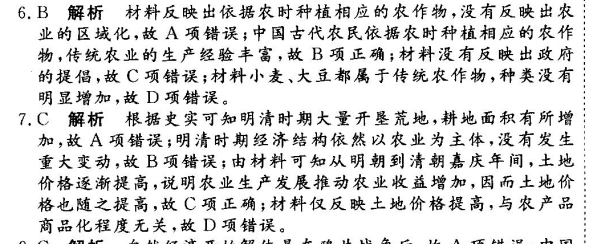 6. B 解析 材料反映出依据农时种植相应的农作物,没有反映出农
业的区域化,故 A 项错误;中国古代农民依据农时种植相应的农作
物,传统农业的生产经验丰富,故 B 项正确;材料没有反映出政府
的提倡,故 C 项错误;材料小麦、大豆都属于传统农作物,种类没有
明显增加,故 D 项错误。
7. C 解析 根据史实可知明清时期大量开垦荒地,耕地面积有所增
加,故 A 项错误;明清时期经济结构依然以农业为主体,没有发生
重大变动,故 B 项错误;由材料可知从明朝到清朝嘉庆年间,土地
价格逐渐提高,说明农业生产发展推动农业收益增加,因而土地价
格也随之提高,故 C 项正确;材料仅反映土地价格提高,与农产品
商品化程度无关,故 D 项错误。